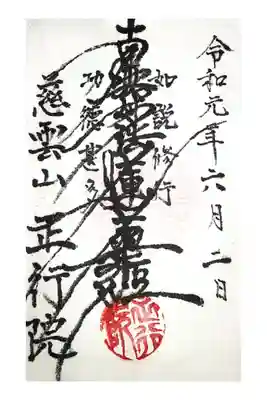 令和元年六月二日
如説修行
南無妙法蓮華経
功徳甚多
慈雲山 正行院